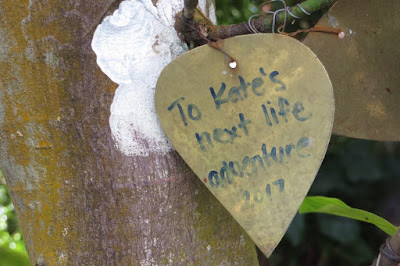 To Kate's
next life
adventure
2017